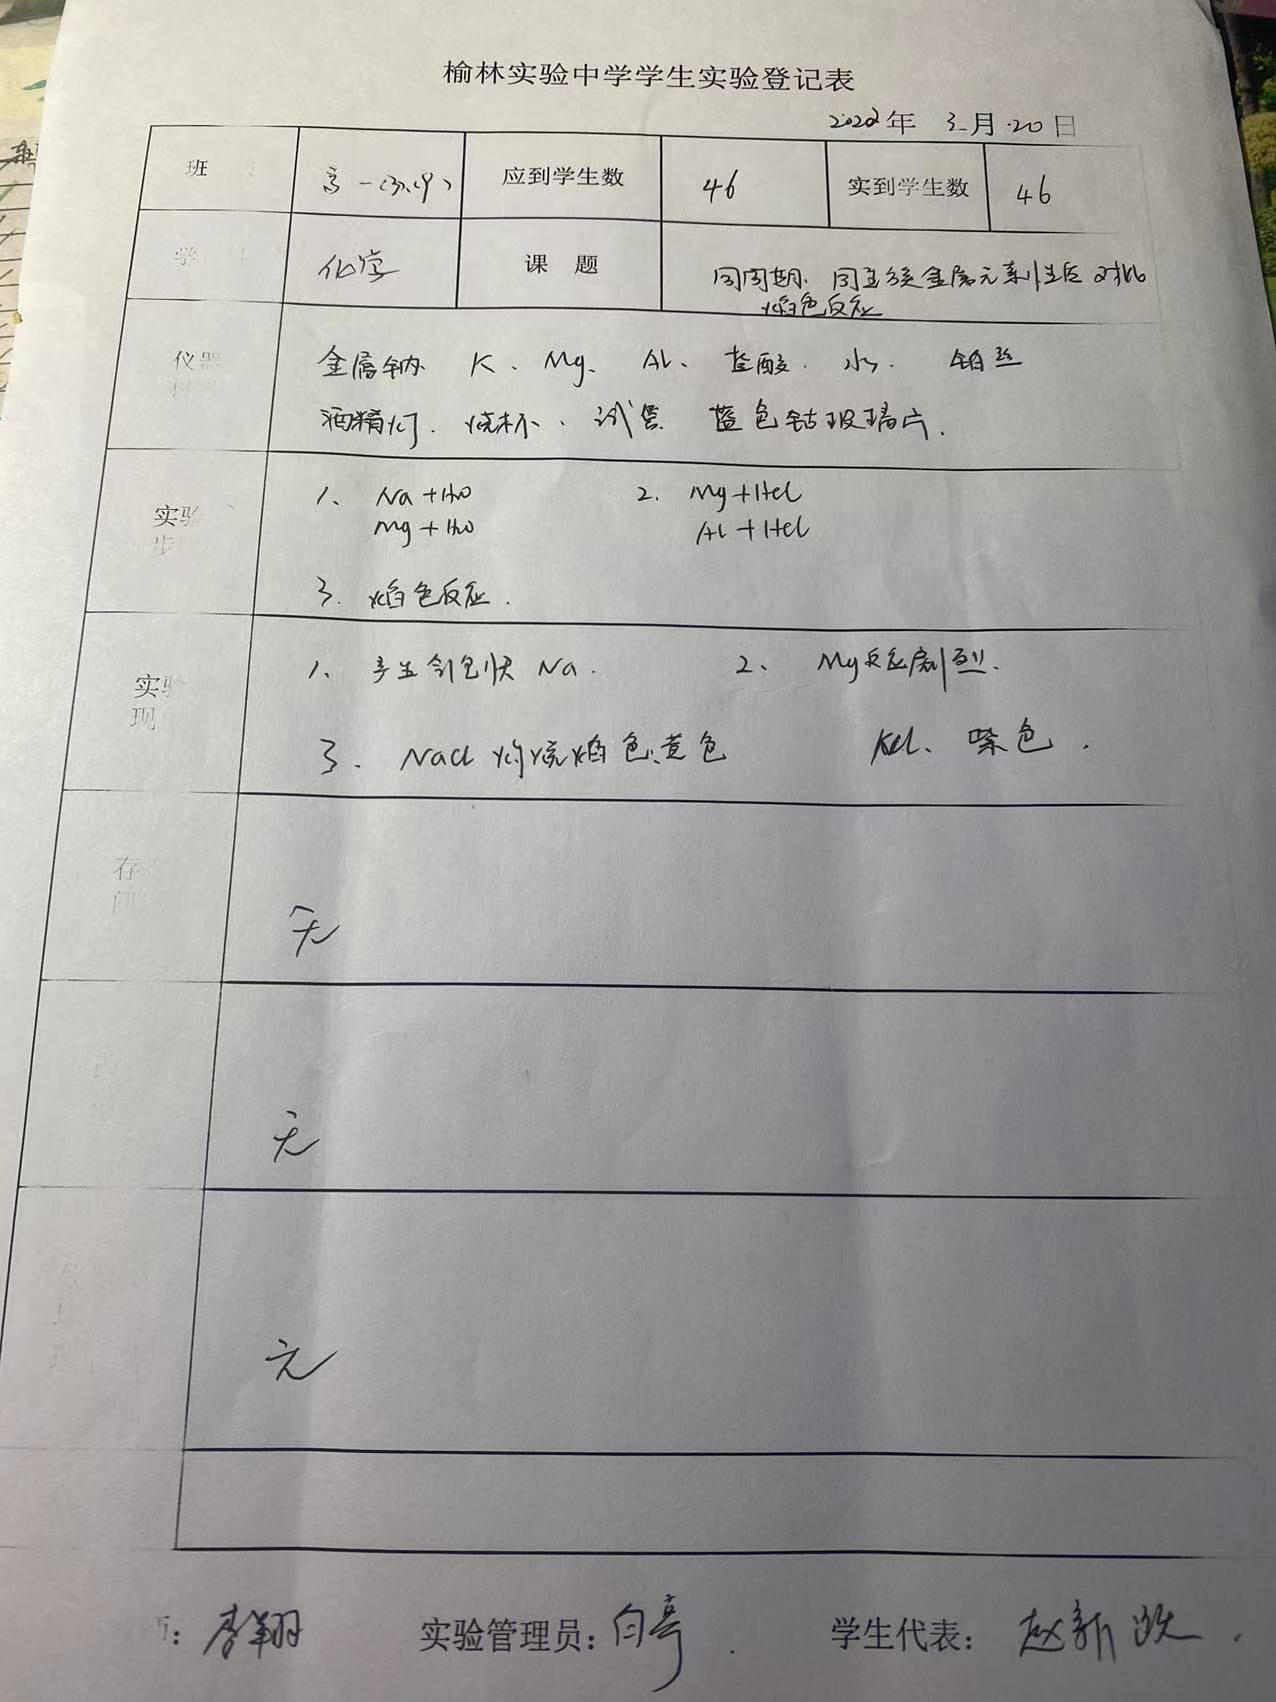 榆林实验中学学生实验登记表
2022年 3月 20日
班 高一(3)、(4) 应到学生数 46 实到学生数 46
学 化学 课 题 同周期、同主族金属元素性质对比
焰色反应
仪器 金属钠 K、Mg、Al、盐酸、水、铂丝
材 酒精灯、烧杯、试管 蓝色钴玻璃片.
实验 1、Na+H₂O 2、Mg+Hcl
步 Mg+H₂O Al+Hcl
3. 焰色反应.
实验 1、产生气包快 Na. 2、Mg反应剧烈.
现 3. Nacl 灼烧焰色:黄色 Kcl、紫色.
存
问
无
无
无
李翔 实验管理员: 白 学生代表: 赵新